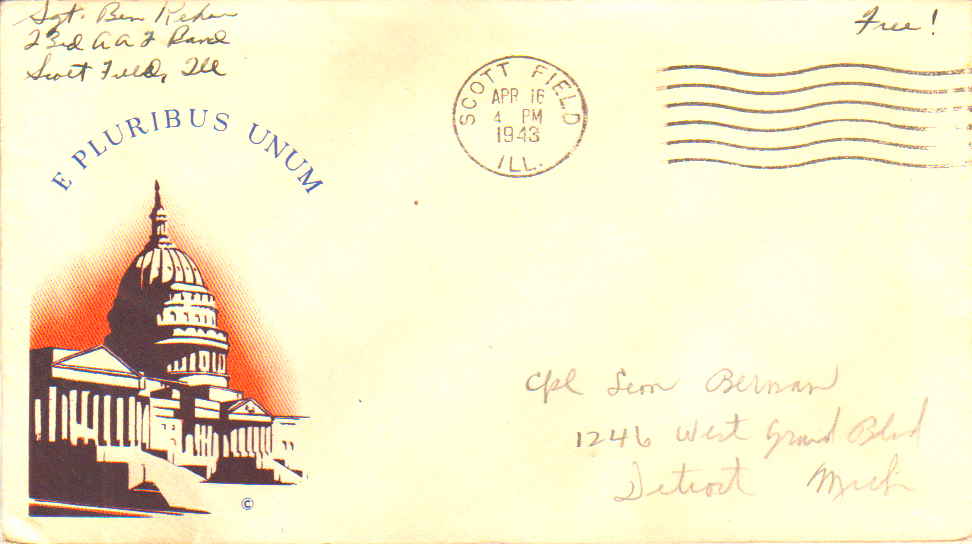 Sgt. Ben Rehan
23rd AAF Band
Scott Field, Ill
Free!
SCOTT FIELD
APR 16
4 PM
1943
ILL.
E PLURIBUS UNUM
©
Cpl Leon Berman
1246 West Grand Blvd
Detroit Mich